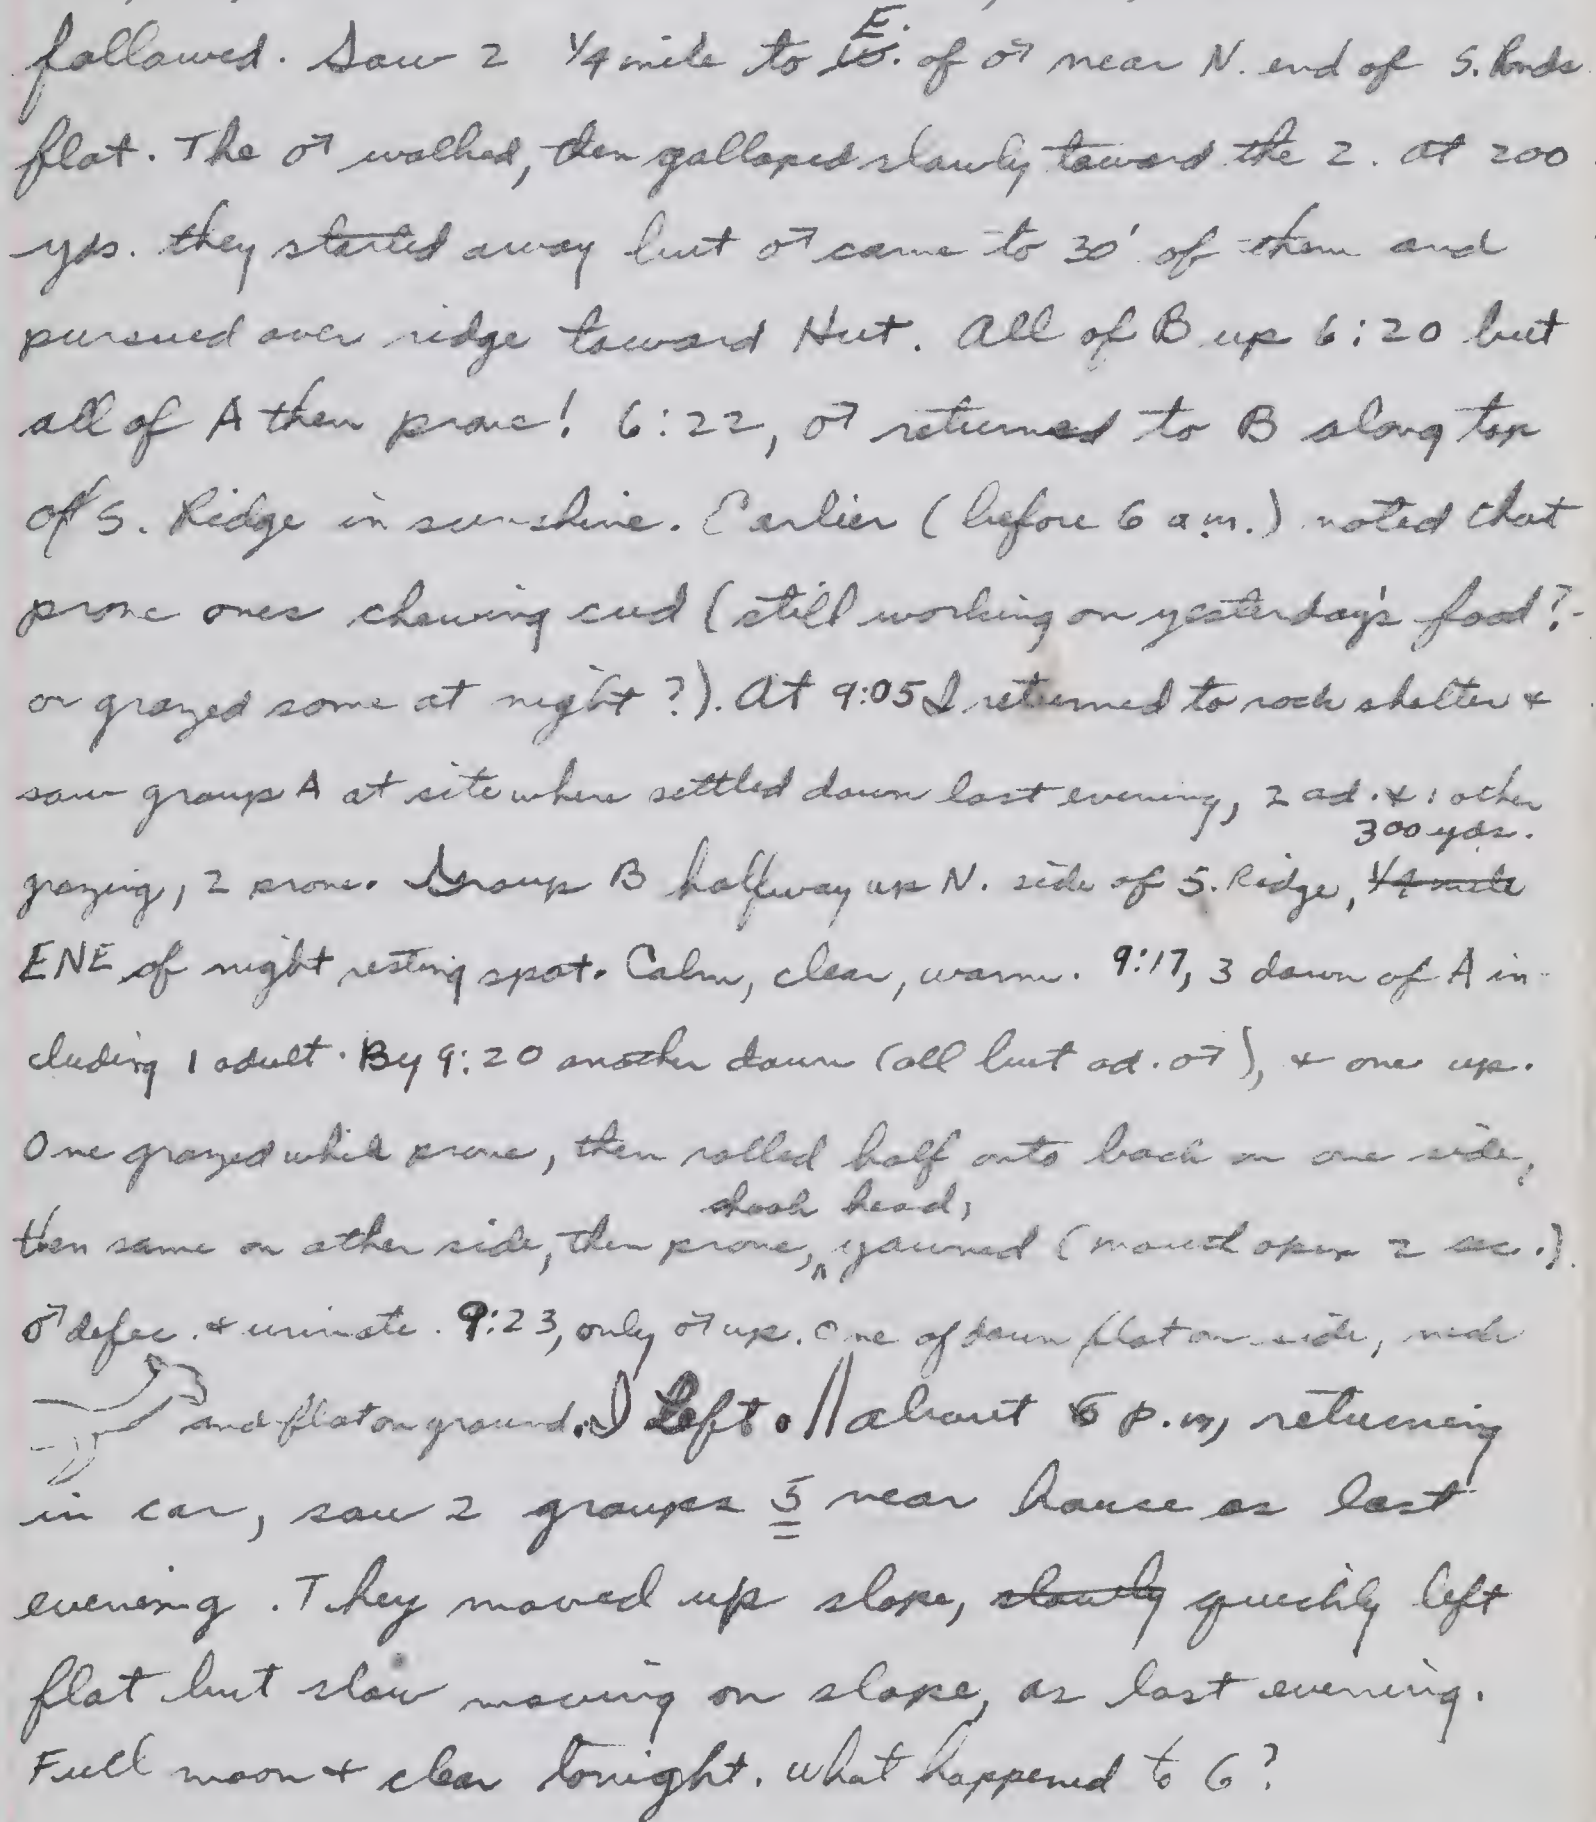 followed. Saw 2 1/4 mile to E. of ♂ near N. end of S. Ponds
flat. The ♂ walked, then galloped slowly toward the 2. At 200
yds. they started away but ♂ came to 30' of them and
pursued over ridge toward Hut. All of B up 6:20 but
all of A then prone! 6:22, ♂ returned to B along top
of S. Ridge in sunshine. Earlier (before 6 a.m.) noted that
prone ones chewing cud (still working on yesterday's food?-
or grazed some at night?). At 9:05 I returned to rock shelter +
saw group A at site where settled down last evening, 2 ad. + 1 other
300 yds.
grazing, 2 prone. Group B halfway up N. side of S. Ridge, 1/4 mile
ENE of night resting spot. Calm, clear, warm. 9:17, 3 down of A in-
cluding 1 adult. By 9:20 another down (all but ad. ♂), + one up.
One grazed while prone, then rolled half onto back on one side,
shook head,
then same on other side, then prone, ^ yawned (mouth open 2 sec.).
♂ defec. + urinate. 9:23, only ♂ up. One of down flat on side, neck
and flat on ground. I Left. // About 6 p.m, returning
in car, saw 2 groups 5 near house as last
evening. They moved up slope, slowly quickly left
flat but slow moving on slope, as last evening.
Full moon + clear tonight. What happened to 6?